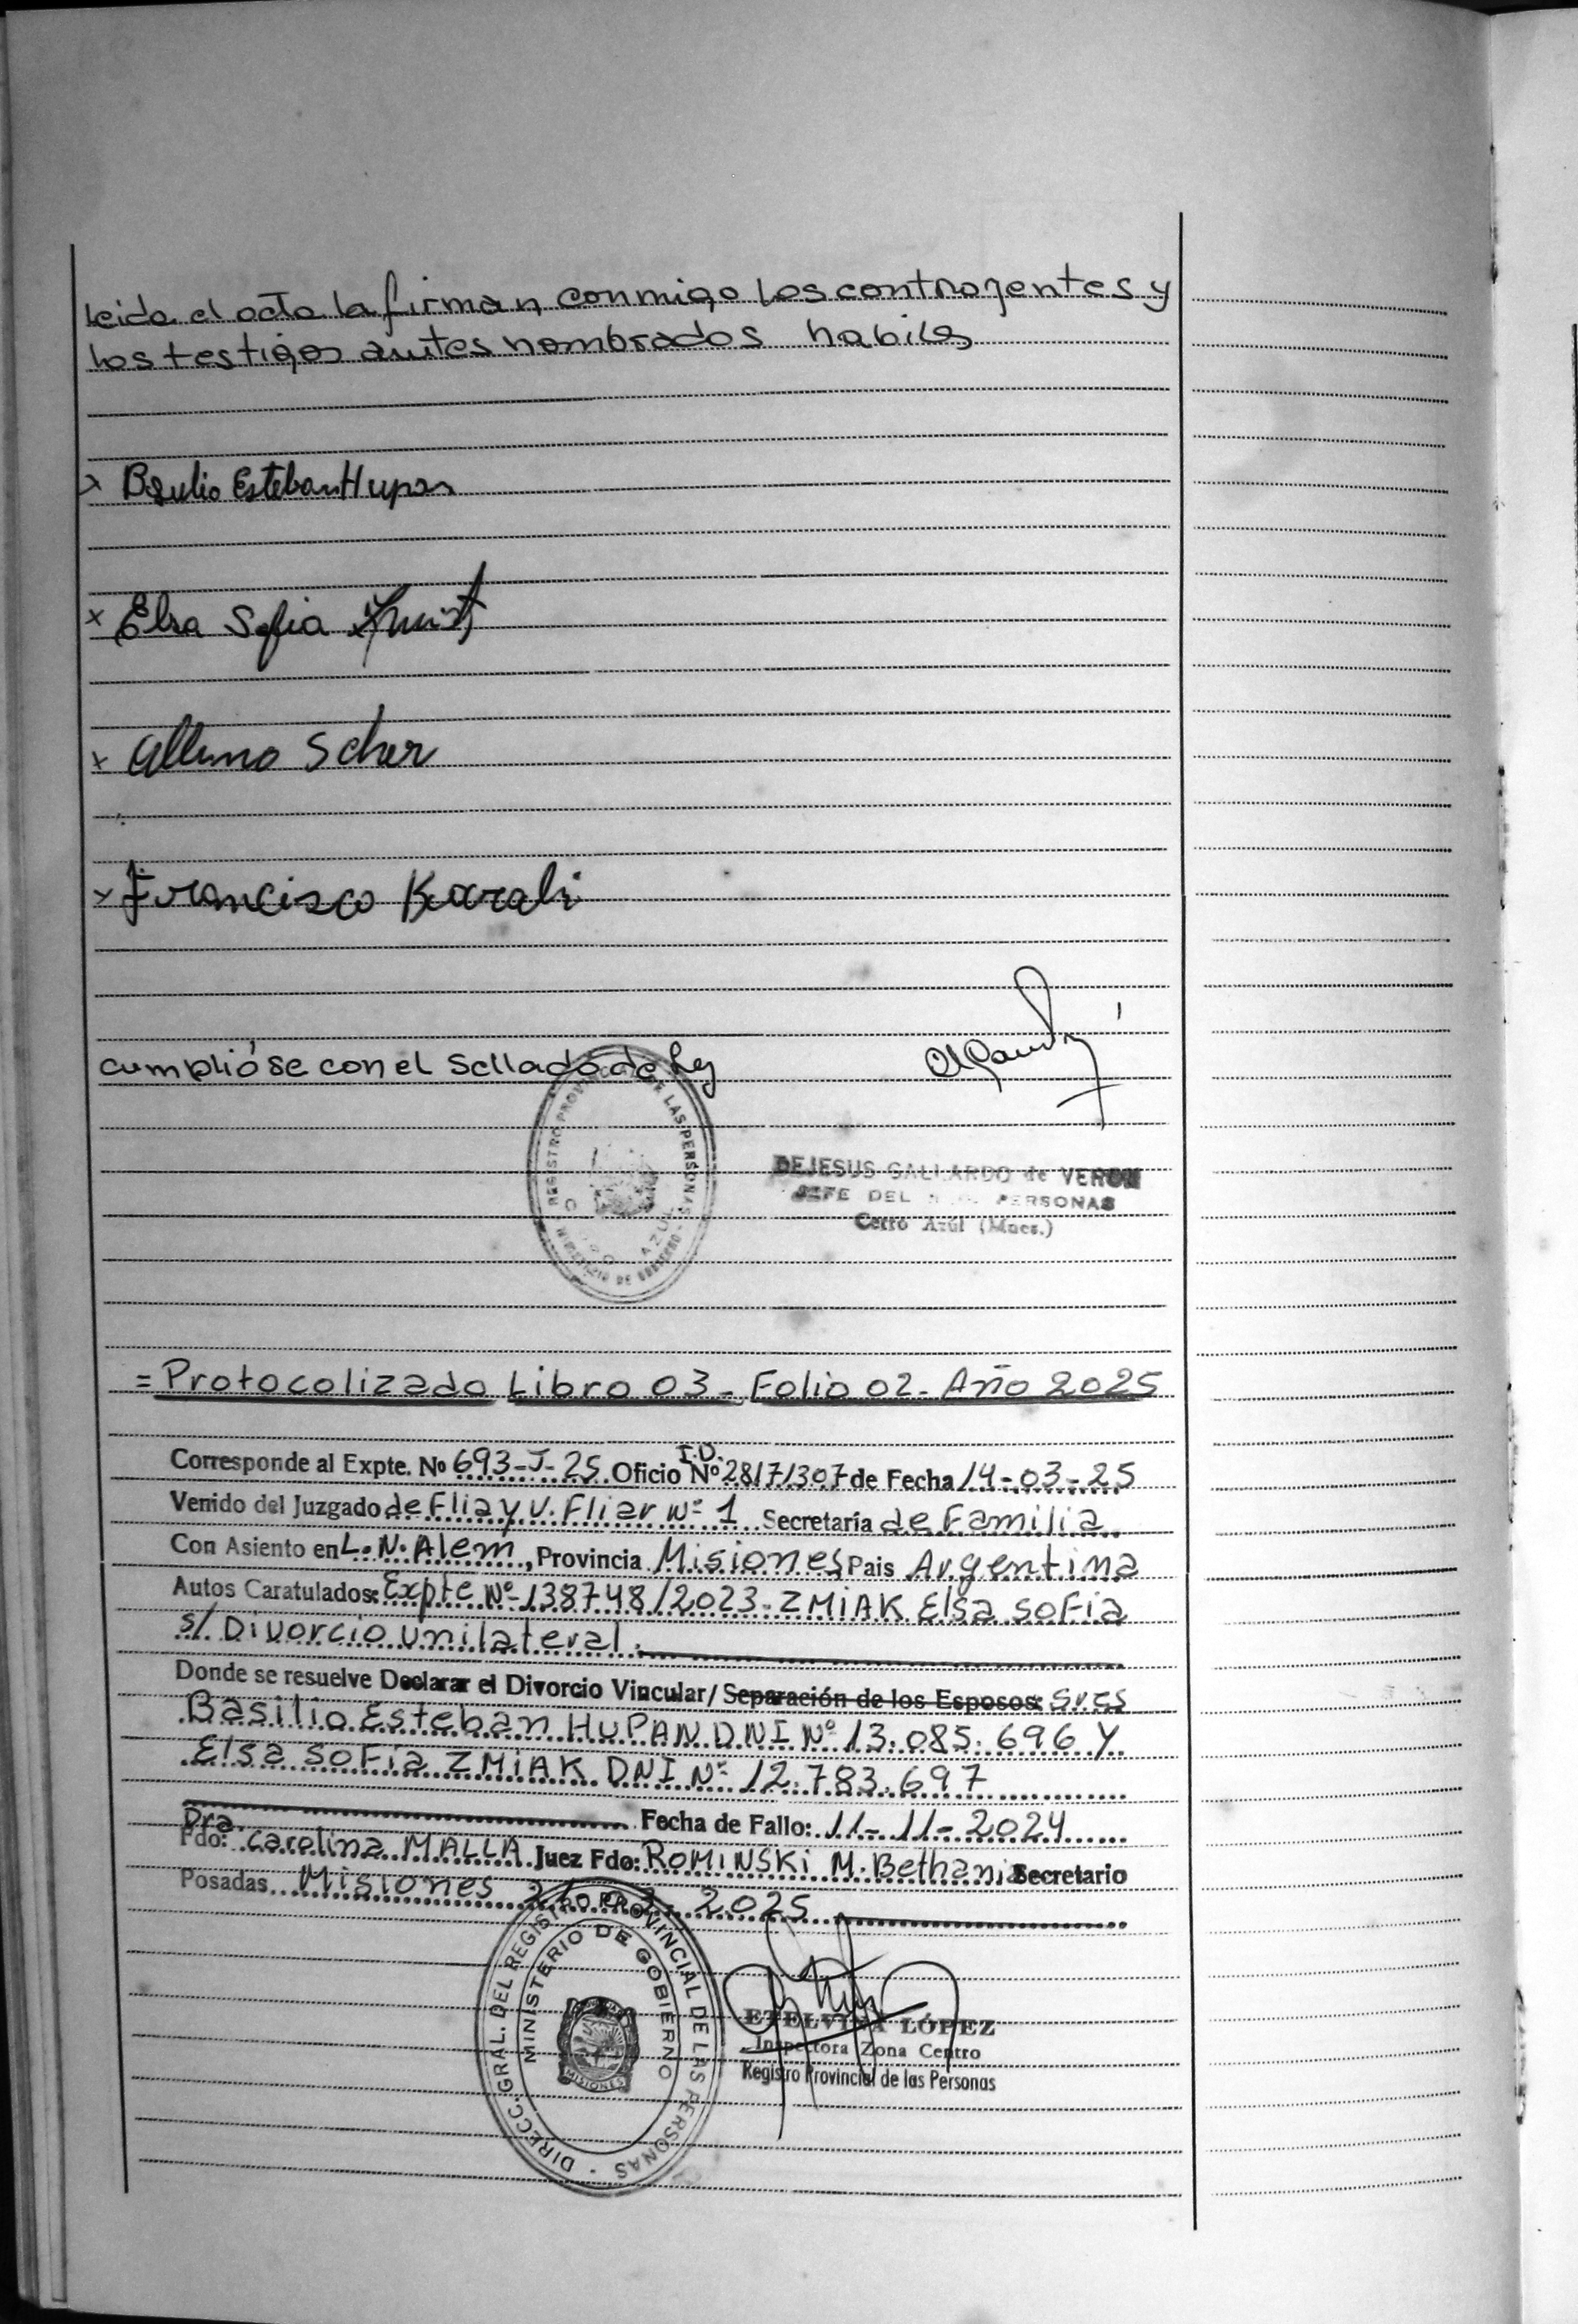 leida el acta la firman conmigo los contrayentes y
los testigos antes nombrados habiles
x Basilio Esteban Hupan
x Elsa Sofia
x Albino Scher
x Francisco Karabi
cumplióse con el Sellado de Ley
REGISTRO PROVINCIAL DE LAS PERSONAS
MINISTERIO DE GOBIERNO
AZUL
DEJESUS GALLARDO de VERON
JEFE DEL PERSONAS
Cerro Azúl (Mnes.)
= Protocolizado Libro 03 - Folio 02 - Año 2025
I.D.
Corresponde al Expte. No 693-J-25 Oficio Nº 28171307 de Fecha 14-03-25
Venido del Juzgado de Flia y V. Fliar Nº 1 Secretaría de Familia
Con Asiento en L. N. Alem, Provincia Misiones Pais Argentina
Autos Caratulados: Expte Nº 138748/2023 - ZMIAK Elsa Sofia
s/ Divorcio unilateral.
Donde se resuelve Declarar el Divorcio Vincular/ Separación de los Esposos: Sres
Basilio Esteban HUPAN DNI Nº 13.085.696 Y
Elsa Sofia ZMIAK DNI Nº 12.783.697
Fecha de Fallo: 11-11-2024
Dra.
Fdo: Carolina MALLA Juez Fdo: ROMINSKI M. Bethania Secretario
Posadas Misiones 2025
DIRECC. GRAL. DEL REGISTRO PROVINCIAL DE LAS PERSONAS
MINISTERIO DE GOBIERNO
MISIONES
ETELVINA LÓPEZ
Inspectora Zona Centro
Registro Provincial de las Personas